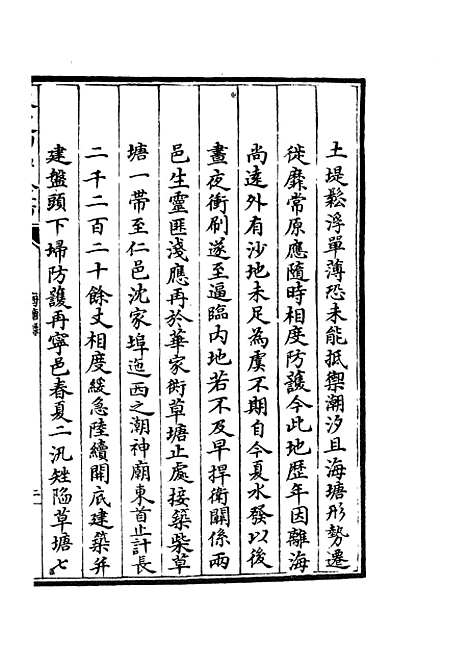 土堤鬆浮單薄恐未能抵禦潮汐且海塘形勢遷
徙靡常原應隨時相度防護今此地歷年因離海
尚遠外有沙地未足為虞不期自今夏水發以後
晝夜衝刷遂至逼臨内地若不及早捍衛關係兩
邑生靈匪淺應再於華家衖草塘止處接築柴草
塘一帶至仁邑沈家埠迤西之潮神廟東首止計長
二千二百二十餘丈相度緩急陸續開底建築并
建盤頭下埽防護再寧邑春夏二汛矬陷草塘七